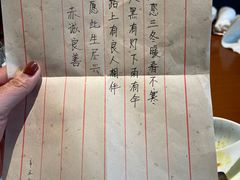 愿三冬暖春不寒
天黑有灯下雨有伞
路上有良人相伴
愿此生尽兴
赤诚良善